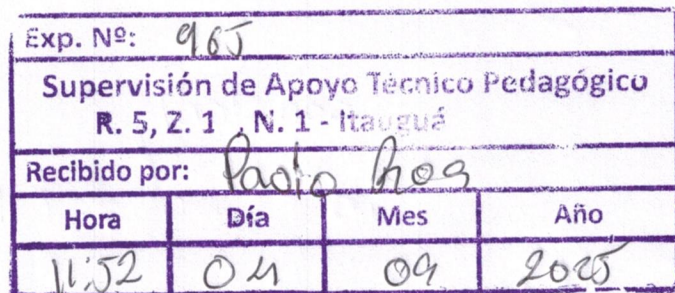 Exp. Nº: 965
Supervisión de Apoyo Técnico Pedagógico
R. 5, Z. 1 , N. 1 - Itauguá
Recibido por:
Hora Día Mes Año
11:52 04 09 2025